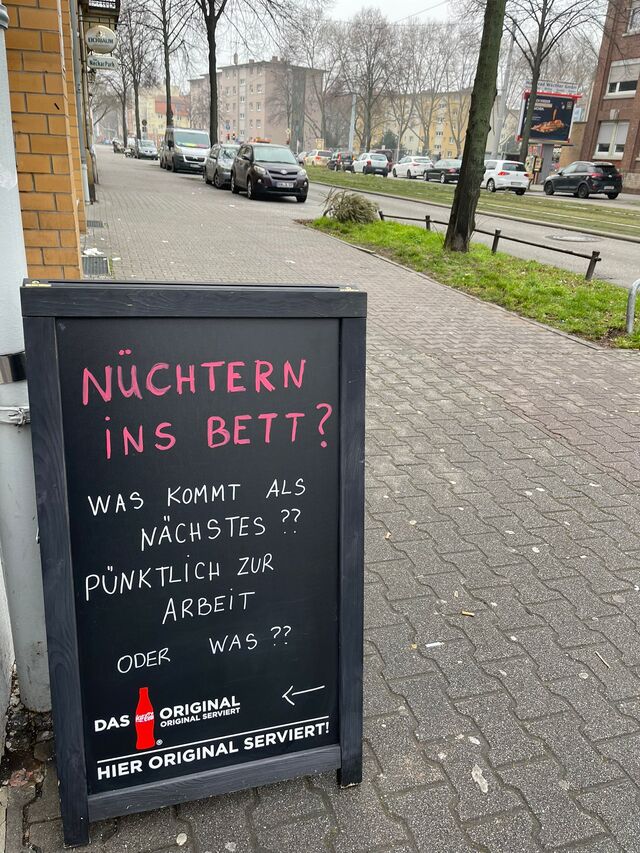 EICHBAUM
NeckarPark
NÜCHTERN
INS BETT?
WAS KOMMT ALS
NÄCHSTES ??
PÜNKTLICH ZUR
ARBEIT
ODER WAS ??
DAS Coca-Cola ® ORIGINAL
ORIGINAL SERVIERT
HIER ORIGINAL SERVIERT!